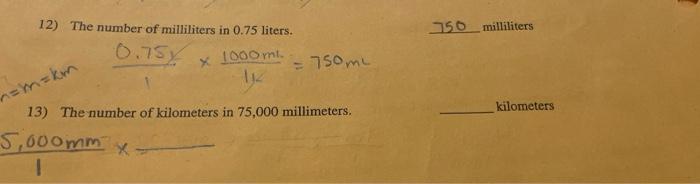 12) The number of milliliters in 0.75 liters. 750 milliliters
0.75L/1 × 1000mL/1L = 750mL
=m=km
13) The number of kilometers in 75,000 millimeters. kilometers
5,000mm/1 ×